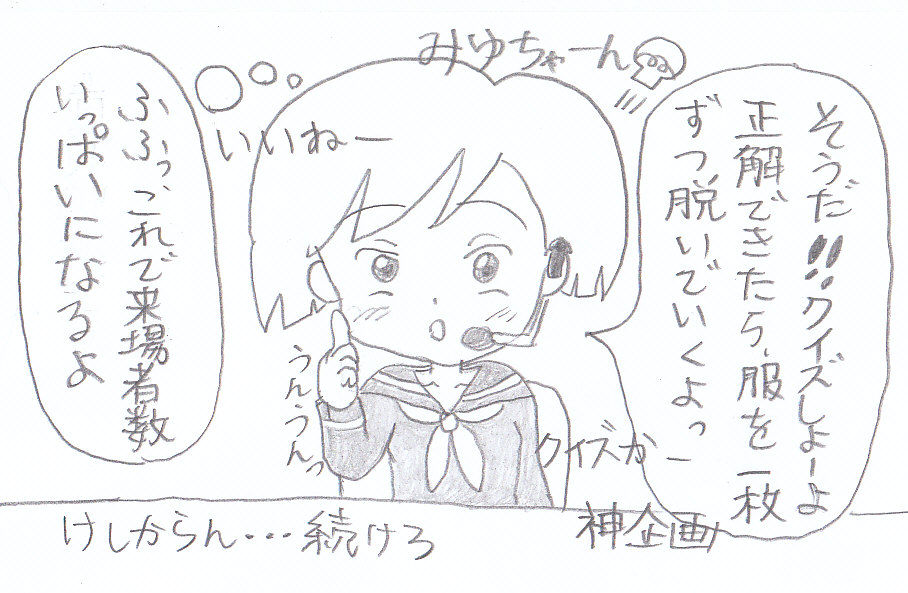 みゆちゃーん
そうだ!!クイズしよーよ
正解できたら、服を一枚
ずつ脱いでいくよっー
いいねー
ふふっ、これで来場者数
いっぱいになるよ
うんうんっ
クイズか
神企画
けしからん・・・続けろ